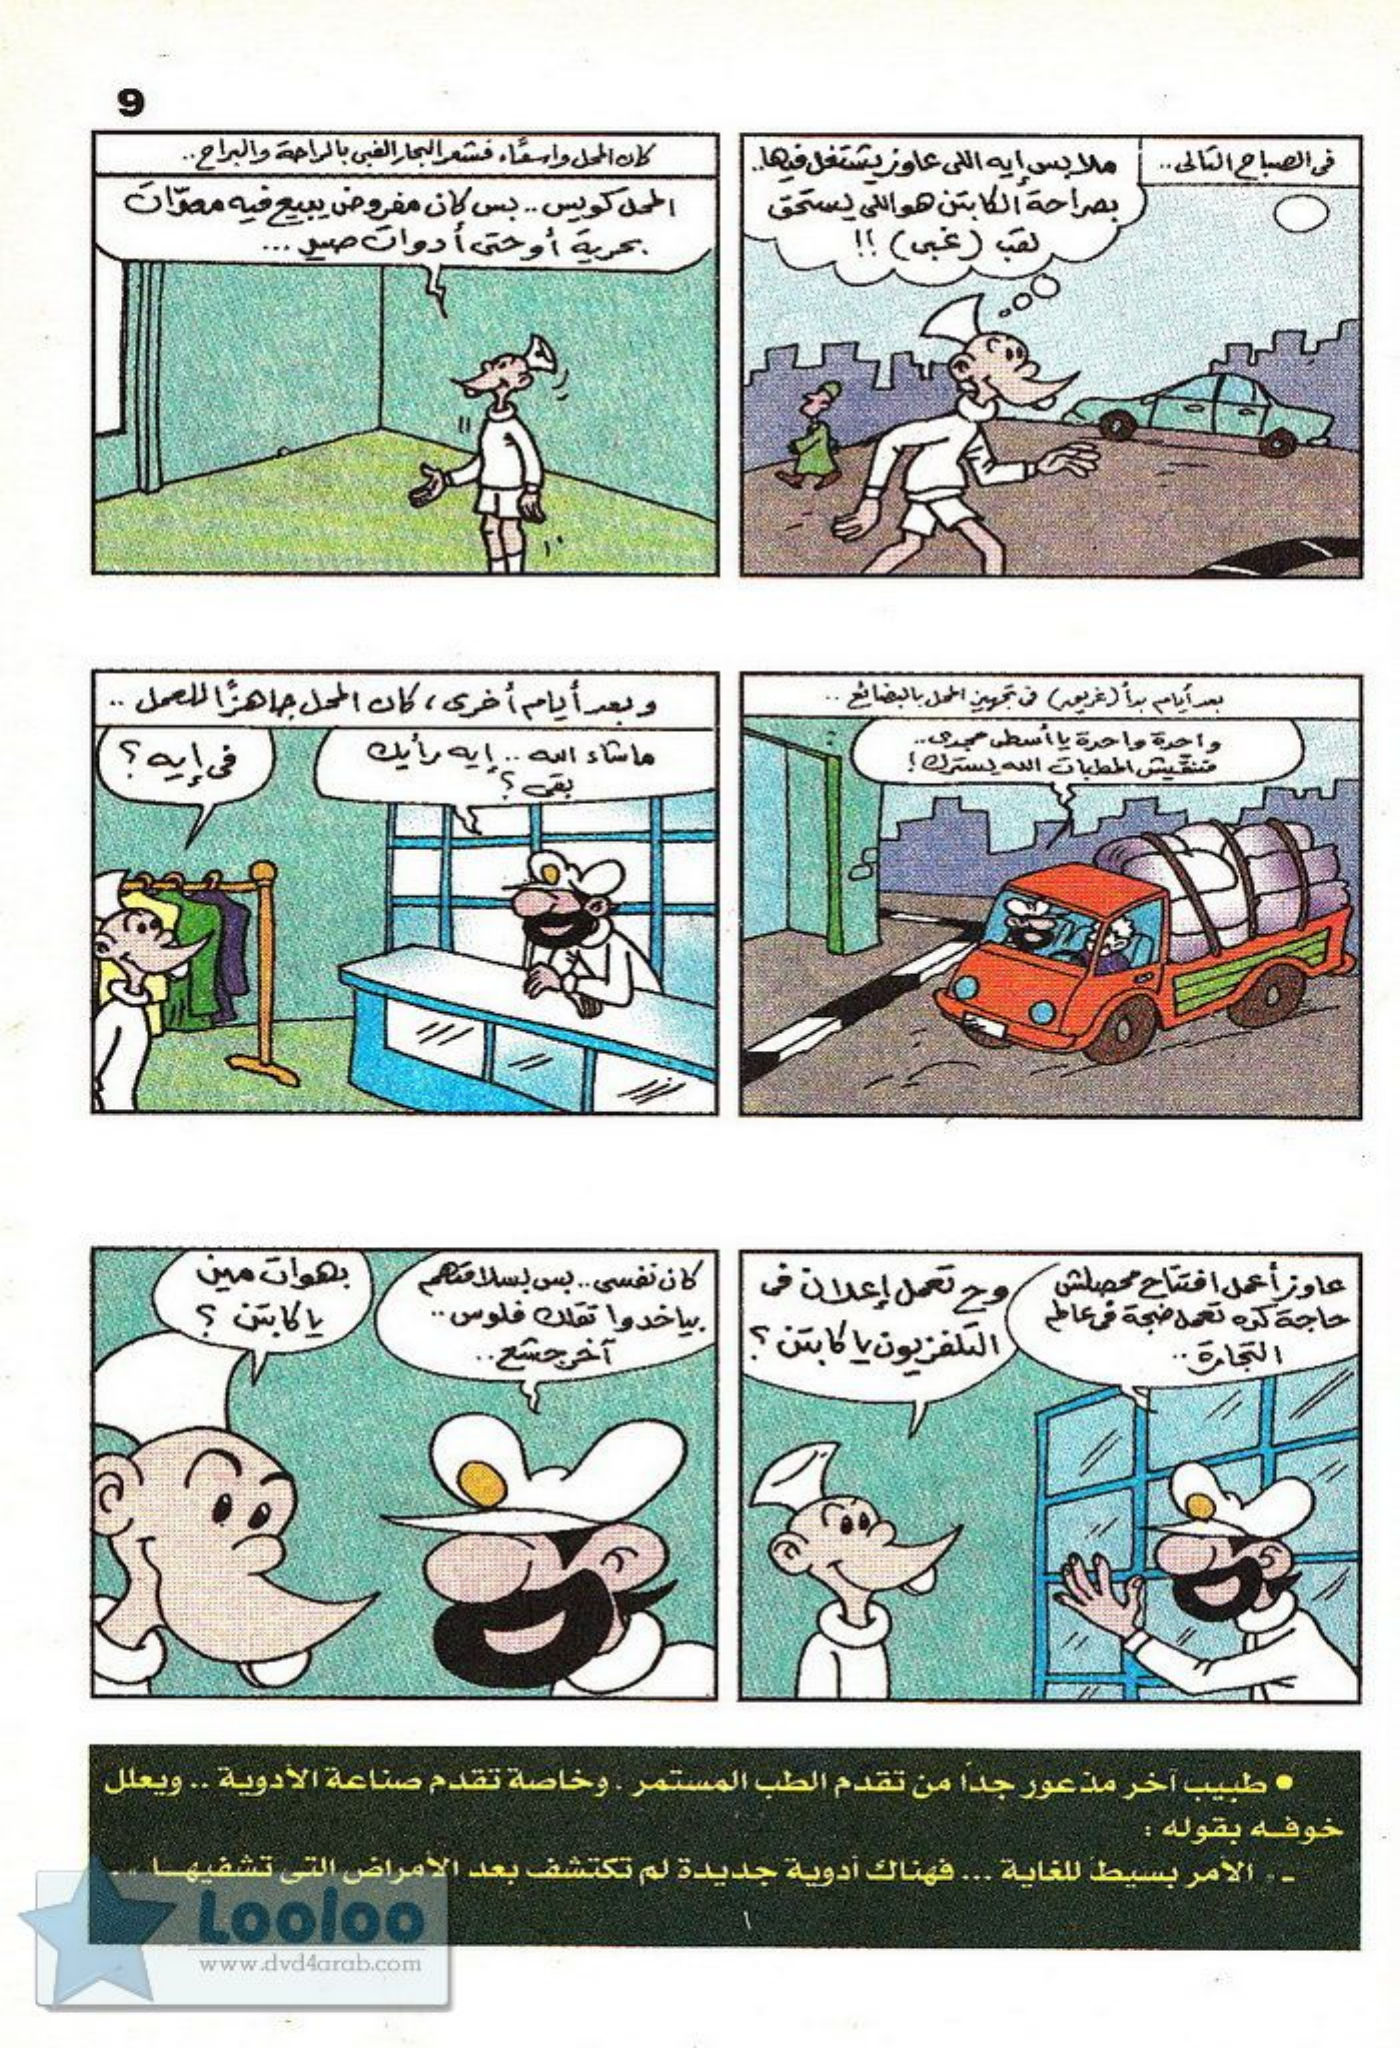 9
فى الصباح التالى..
ملابس إيه اللى عاوز يشتغل فيها..
بصراحة الكابتن هو اللى يستحق
لقب (غبى) !!
كان المحل واسعًا، فشعر البحار الغبى بالراحة والبراح..
المحل كويس.. بس كان مفروض يبيع فيه معدّات
بحرية أو حتى أدوات صيد...
بعد أيام بدأ (غريب) فى تجهيز المحل بالبضائع..
واحدة واحدة يا أسطى مجدى..
متنقيش المطبات الله يسترك!
وبعد أيام أخرى، كان المحل جاهزًا للعمل..
ما شاء الله.. إيه رأيك
بقى؟
فى إيه؟
عاوز أعمل افتتاح محصلش
حاجة كده تعمل ضجة فى عالم
التجارة..
وح تعمل إعلان فى
التلفزيون يا كابتن؟
كان نفسى.. بس بسلامتهم
بياخدوا تقلك فلوس..
آخر جشع..
بهوات مين
يا كابتن؟
● طبيب آخر مذعور جداً من تقدم الطب المستمر. وخاصة تقدم صناعة الأدوية.. ويعلل
خوفه بقوله :
- الأمر بسيط للغاية... فهناك أدوية جديدة لم تكتشف بعد الأمراض التى تشفيها..
١
Looloo
www.dvd4arab.com